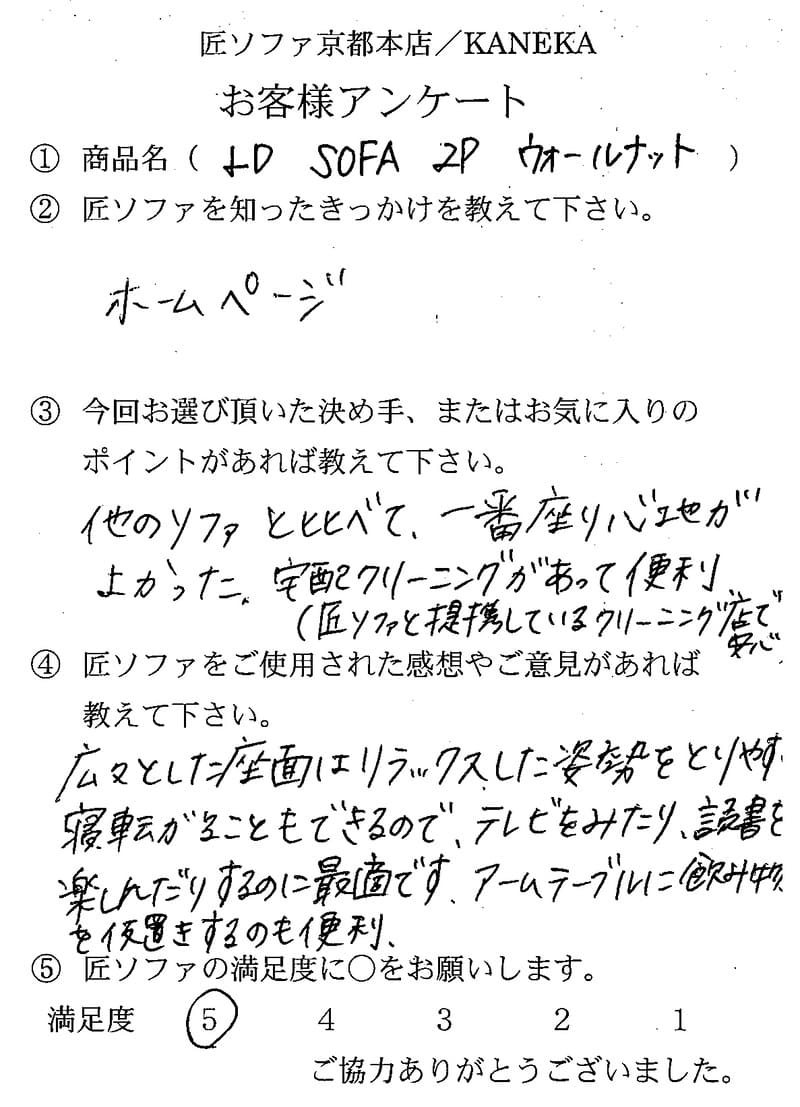 匠ソファ京都本店／KANEKA
お客様アンケート
① 商品名（ LD SOFA 2P ウォールナット ）
② 匠ソファを知ったきっかけを教えて下さい。
ホームページ
③ 今回お選び頂いた決め手、またはお気に入りの
ポイントがあれば教えて下さい。
他のソファとヒヒべて、一番座り心地が
よかった、宅配クリーニングがあって便利、
（匠ソファと提携しているクリーニング店で
安心
④ 匠ソファをご使用された感想やご意見があれば
教えて下さい。
広々とした座面はリラックスした姿勢をとりやす
寝転がることもできるので、テレビをみたり、読書を
楽しんだりするのに最適です、アームテーブルに飲み物
を仮置きするのも便利、
⑤ 匠ソファの満足度に○をお願いします。
満足度 5 4 3 2 1
ご協力ありがとうございました。